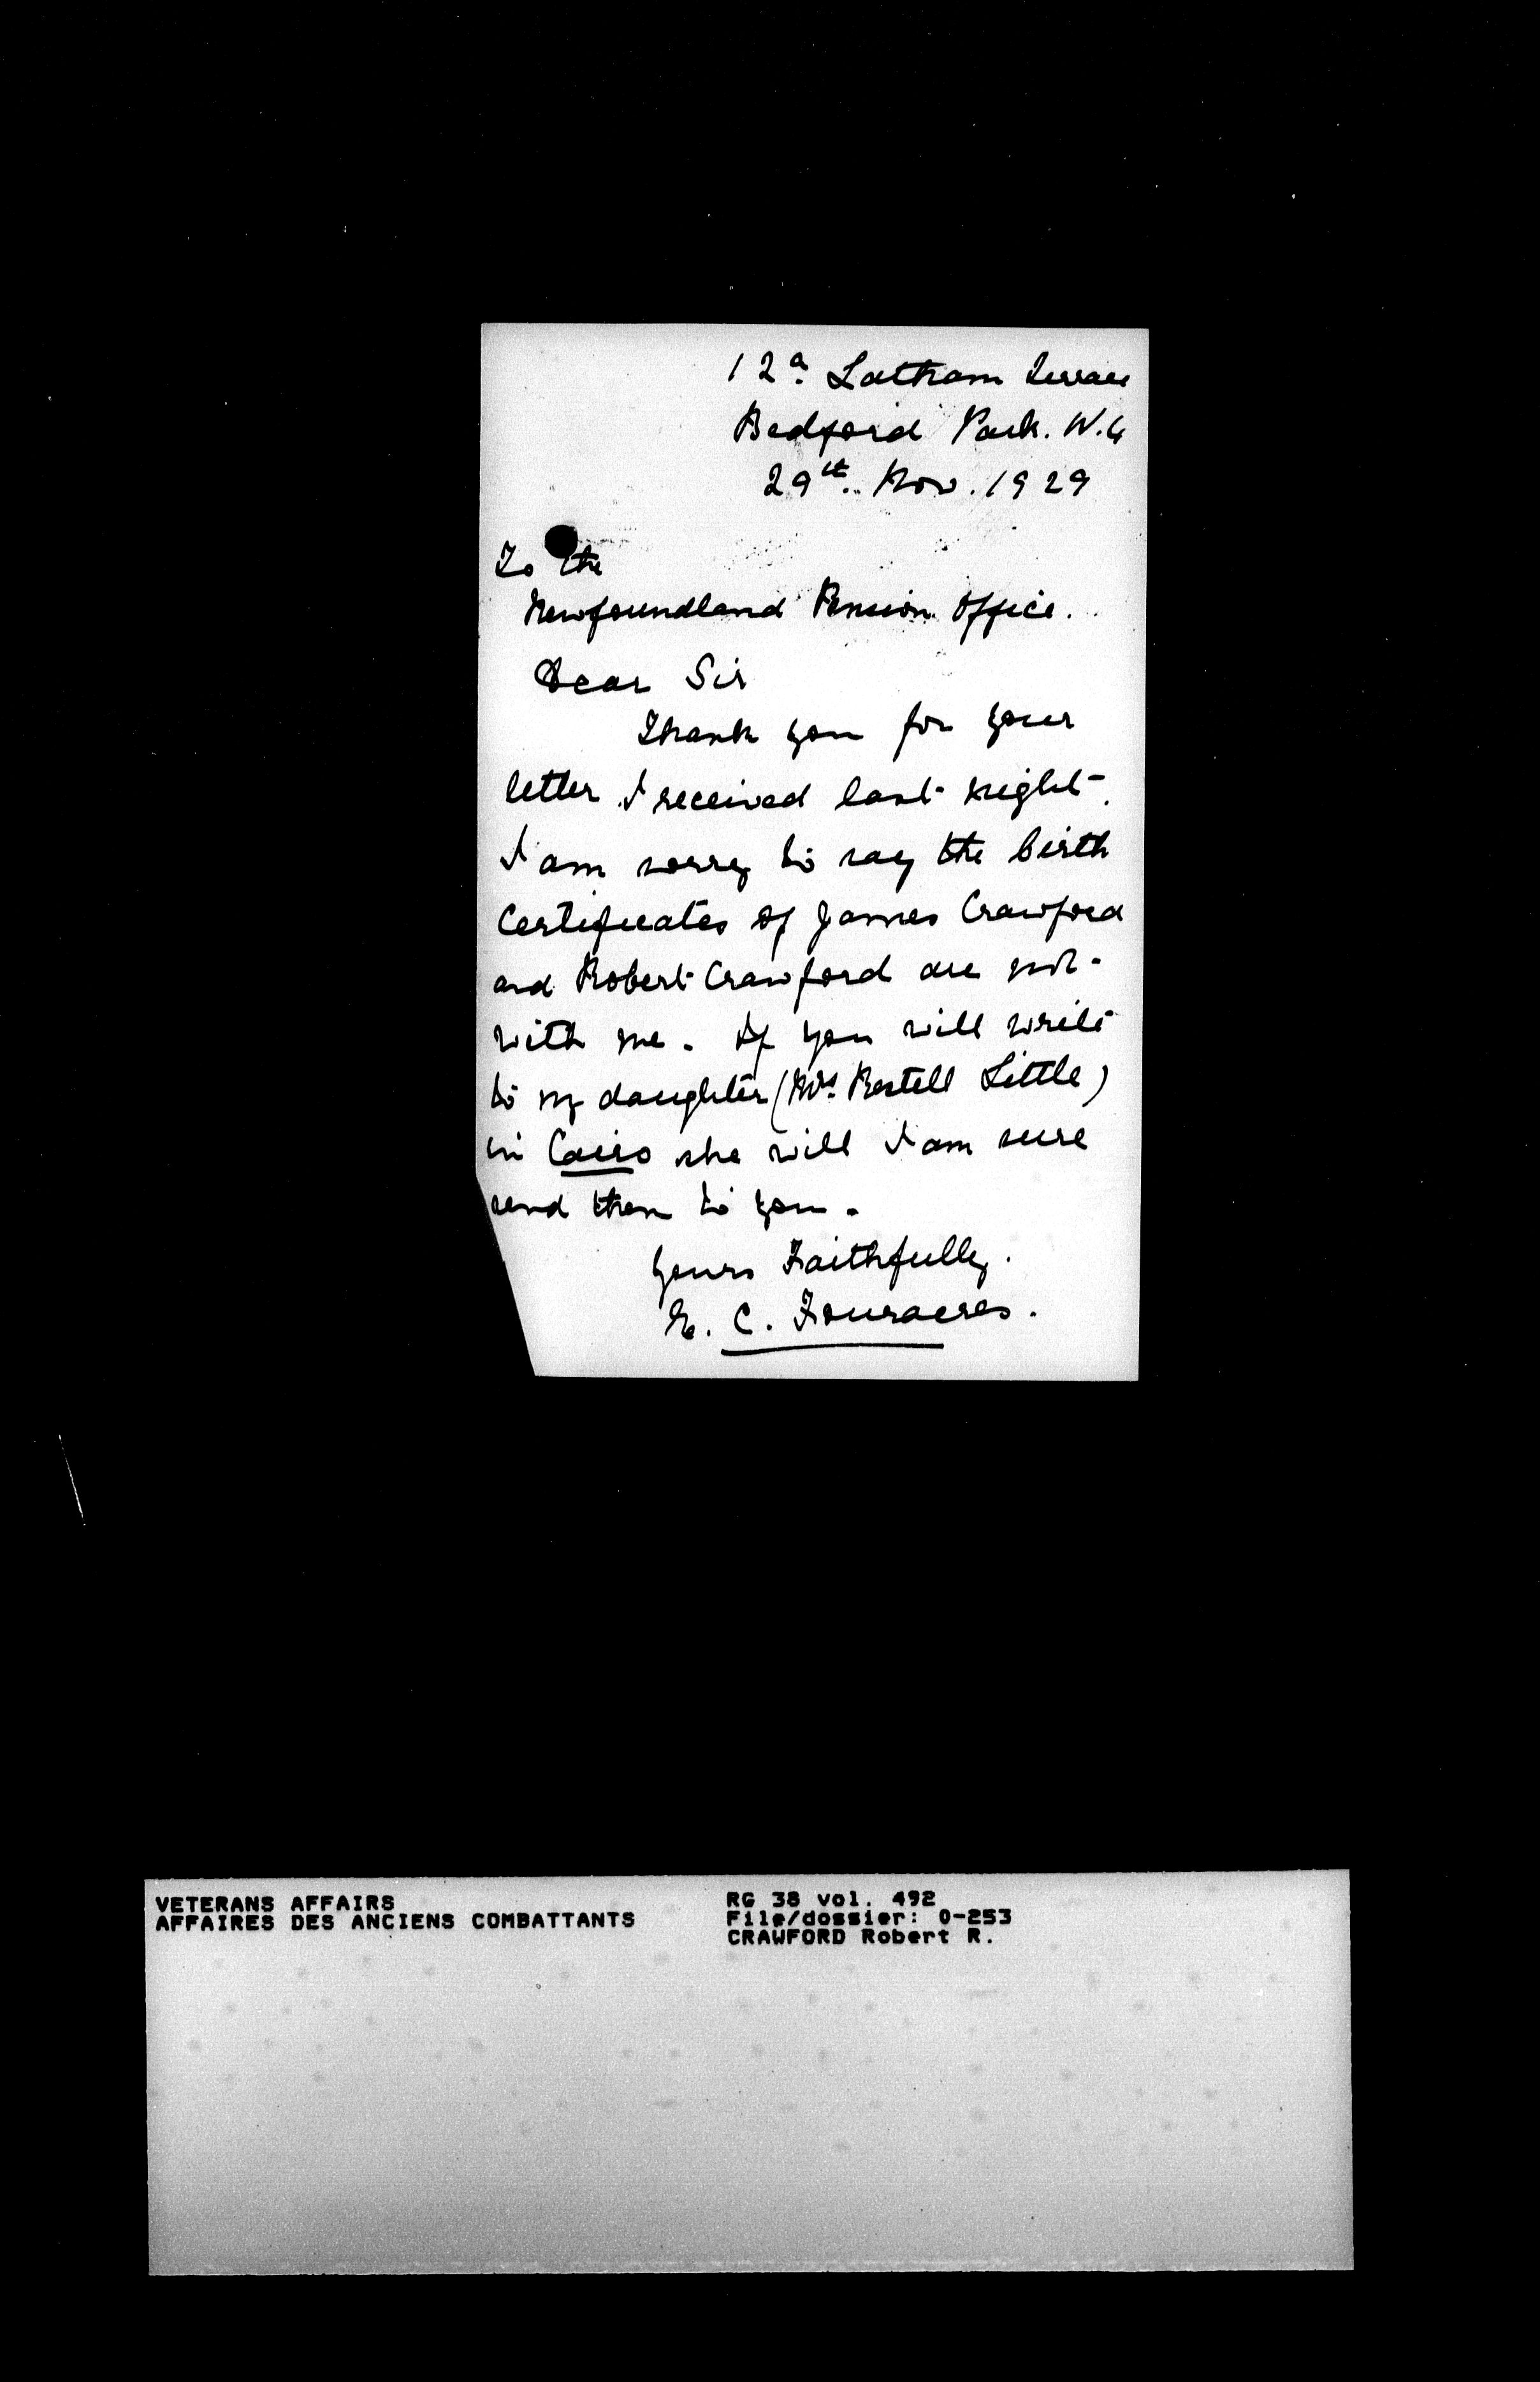 12a. Latham Terrace
Bedford Park. W.4
29th. Nov. 1929
To the
Newfoundland Pension Office.
Dear Sir
Thank you for your
letter I received last night.
I am sorry to say the birth
Certificates of James Crawford
and Robert Crawford are not
with me. If you will write
to my daughter (Mrs. Restell Little)
in Cairo she will I am sure
send them to you.
Yours Faithfully.
E. C. Fouracres.
VETERANS AFFAIRS
AFFAIRES DES ANCIENS COMBATTANTS
RG 38 vol. 492
File/dossier: 0-253
CRAWFORD Robert R.